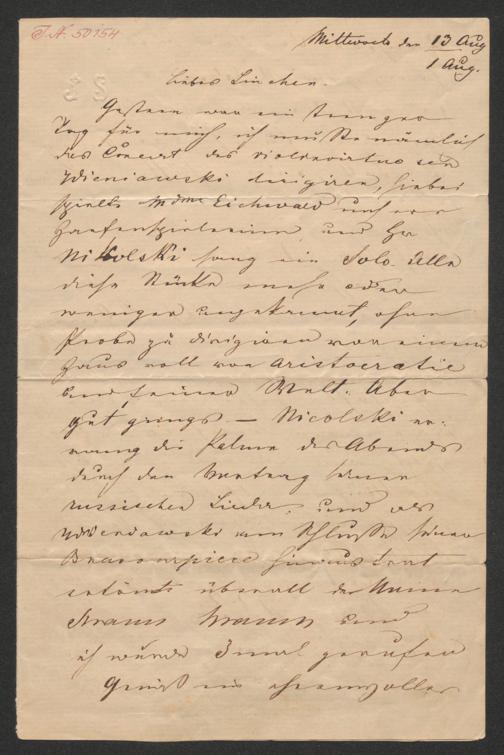 I.N. 50154
Mittwoch den 13 Aug
1 Aug.
Liebes Linchen.
Gestern war ein strenger
Tag für mich, ich musste nämlich
das Concert des Violinvirtuosen
Wieniawski dirigiren, hiebei
spielte Mdme Eichwald und eine
Harfenspielerin und Hr
Nikolski sang ein Solo. Alle
diese Stücke mehr oder
weniger ungekannt, ohne
Probe zu dirigiren vor einem
Haus voll von Aristocratie
und feiner Welt. Aber
gut gings — Nicolski er-
rang die Palme des Abends
durch den Vortrag seiner
russischen Lieder, und als
Wieniawski am Schlusse seiner
Bravourpiece heraustrat
ertönte überall der Name
Strauss Strauss und
ich wurde 3 mal gerufen
Gewiß ein ehrenvoller